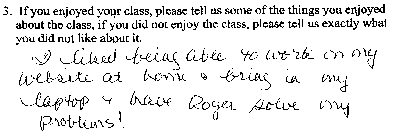 3. If you enjoyed your class, please tell us some of the things you enjoyed
about the class, if you did not enjoy the class, please tell us exactly what
you did not like about it.
I liked being able to work on my
website at home & bring in my
laptop & have Roger solve my
problems!